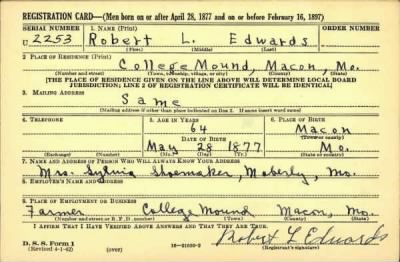 REGISTRATION CARD—(Men born on or after April 28, 1877 and on or before February 16, 1897)
SERIAL NUMBER 1. NAME (Print) ORDER NUMBER
U 2253 Robert L. Edwards
(First) (Middle) (Last)
2. PLACE OF RESIDENCE (Print)
College Mound, Macon, Mo.
(Number and street) (Town, township, village, or city) (County) (State)
[THE PLACE OF RESIDENCE GIVEN ON THE LINE ABOVE WILL DETERMINE LOCAL BOARD
JURISDICTION; LINE 2 OF REGISTRATION CERTIFICATE WILL BE IDENTICAL]
3. MAILING ADDRESS
Same
[Mailing address if other than place indicated on line 2. If same insert word same]
4. TELEPHONE 5. AGE IN YEARS 6. PLACE OF BIRTH
64 Macon
DATE OF BIRTH (Town or county)
May 28 1877 Mo.
(Exchange) (Number) (Mo.) (Day) (Yr.) (State or country)
7. NAME AND ADDRESS OF PERSON WHO WILL ALWAYS KNOW YOUR ADDRESS
Mrs. Sylvia Shoemaker, Moberly, Mo.
8. EMPLOYER'S NAME AND ADDRESS
9. PLACE OF EMPLOYMENT OR BUSINESS
Farmer College Mound Macon, Mo.
(Number and street or R. F. D. number) (Town) (County) (State)
I AFFIRM THAT I HAVE VERIFIED ABOVE ANSWERS AND THAT THEY ARE TRUE.
Robert L Edwards
D. S. S. Form 1
(Revised 4-1-42) (over) (Registrant's signature)